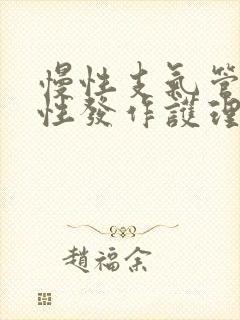 慢性支氣管
性發作護理
趙福余